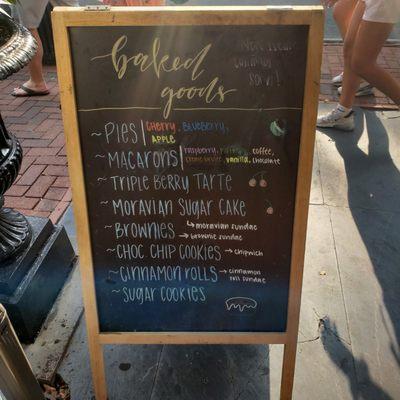 baked
goods
~Pies | cherry, blueberry,
apple
~Macarons | raspberry, coffee,
vanilla, chocolate
~Triple Berry Tarte
~Moravian Sugar Cake
~Brownies ↳ moravian sundae
→ brownie sundae
~Choc. Chip Cookies → chipwich
~Cinnamon Rolls → cinnamon
roll sundae
~Sugar Cookies